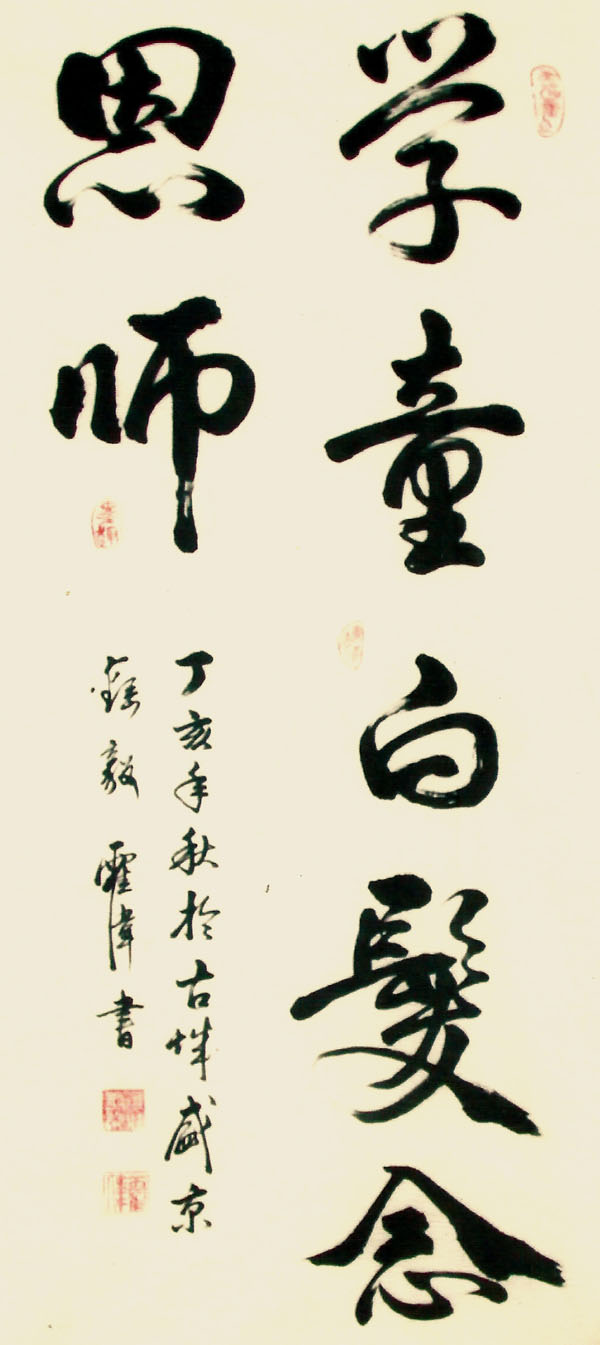 学童白髮念
恩师
丁亥年秋於古城盛京
毅 霍偉書